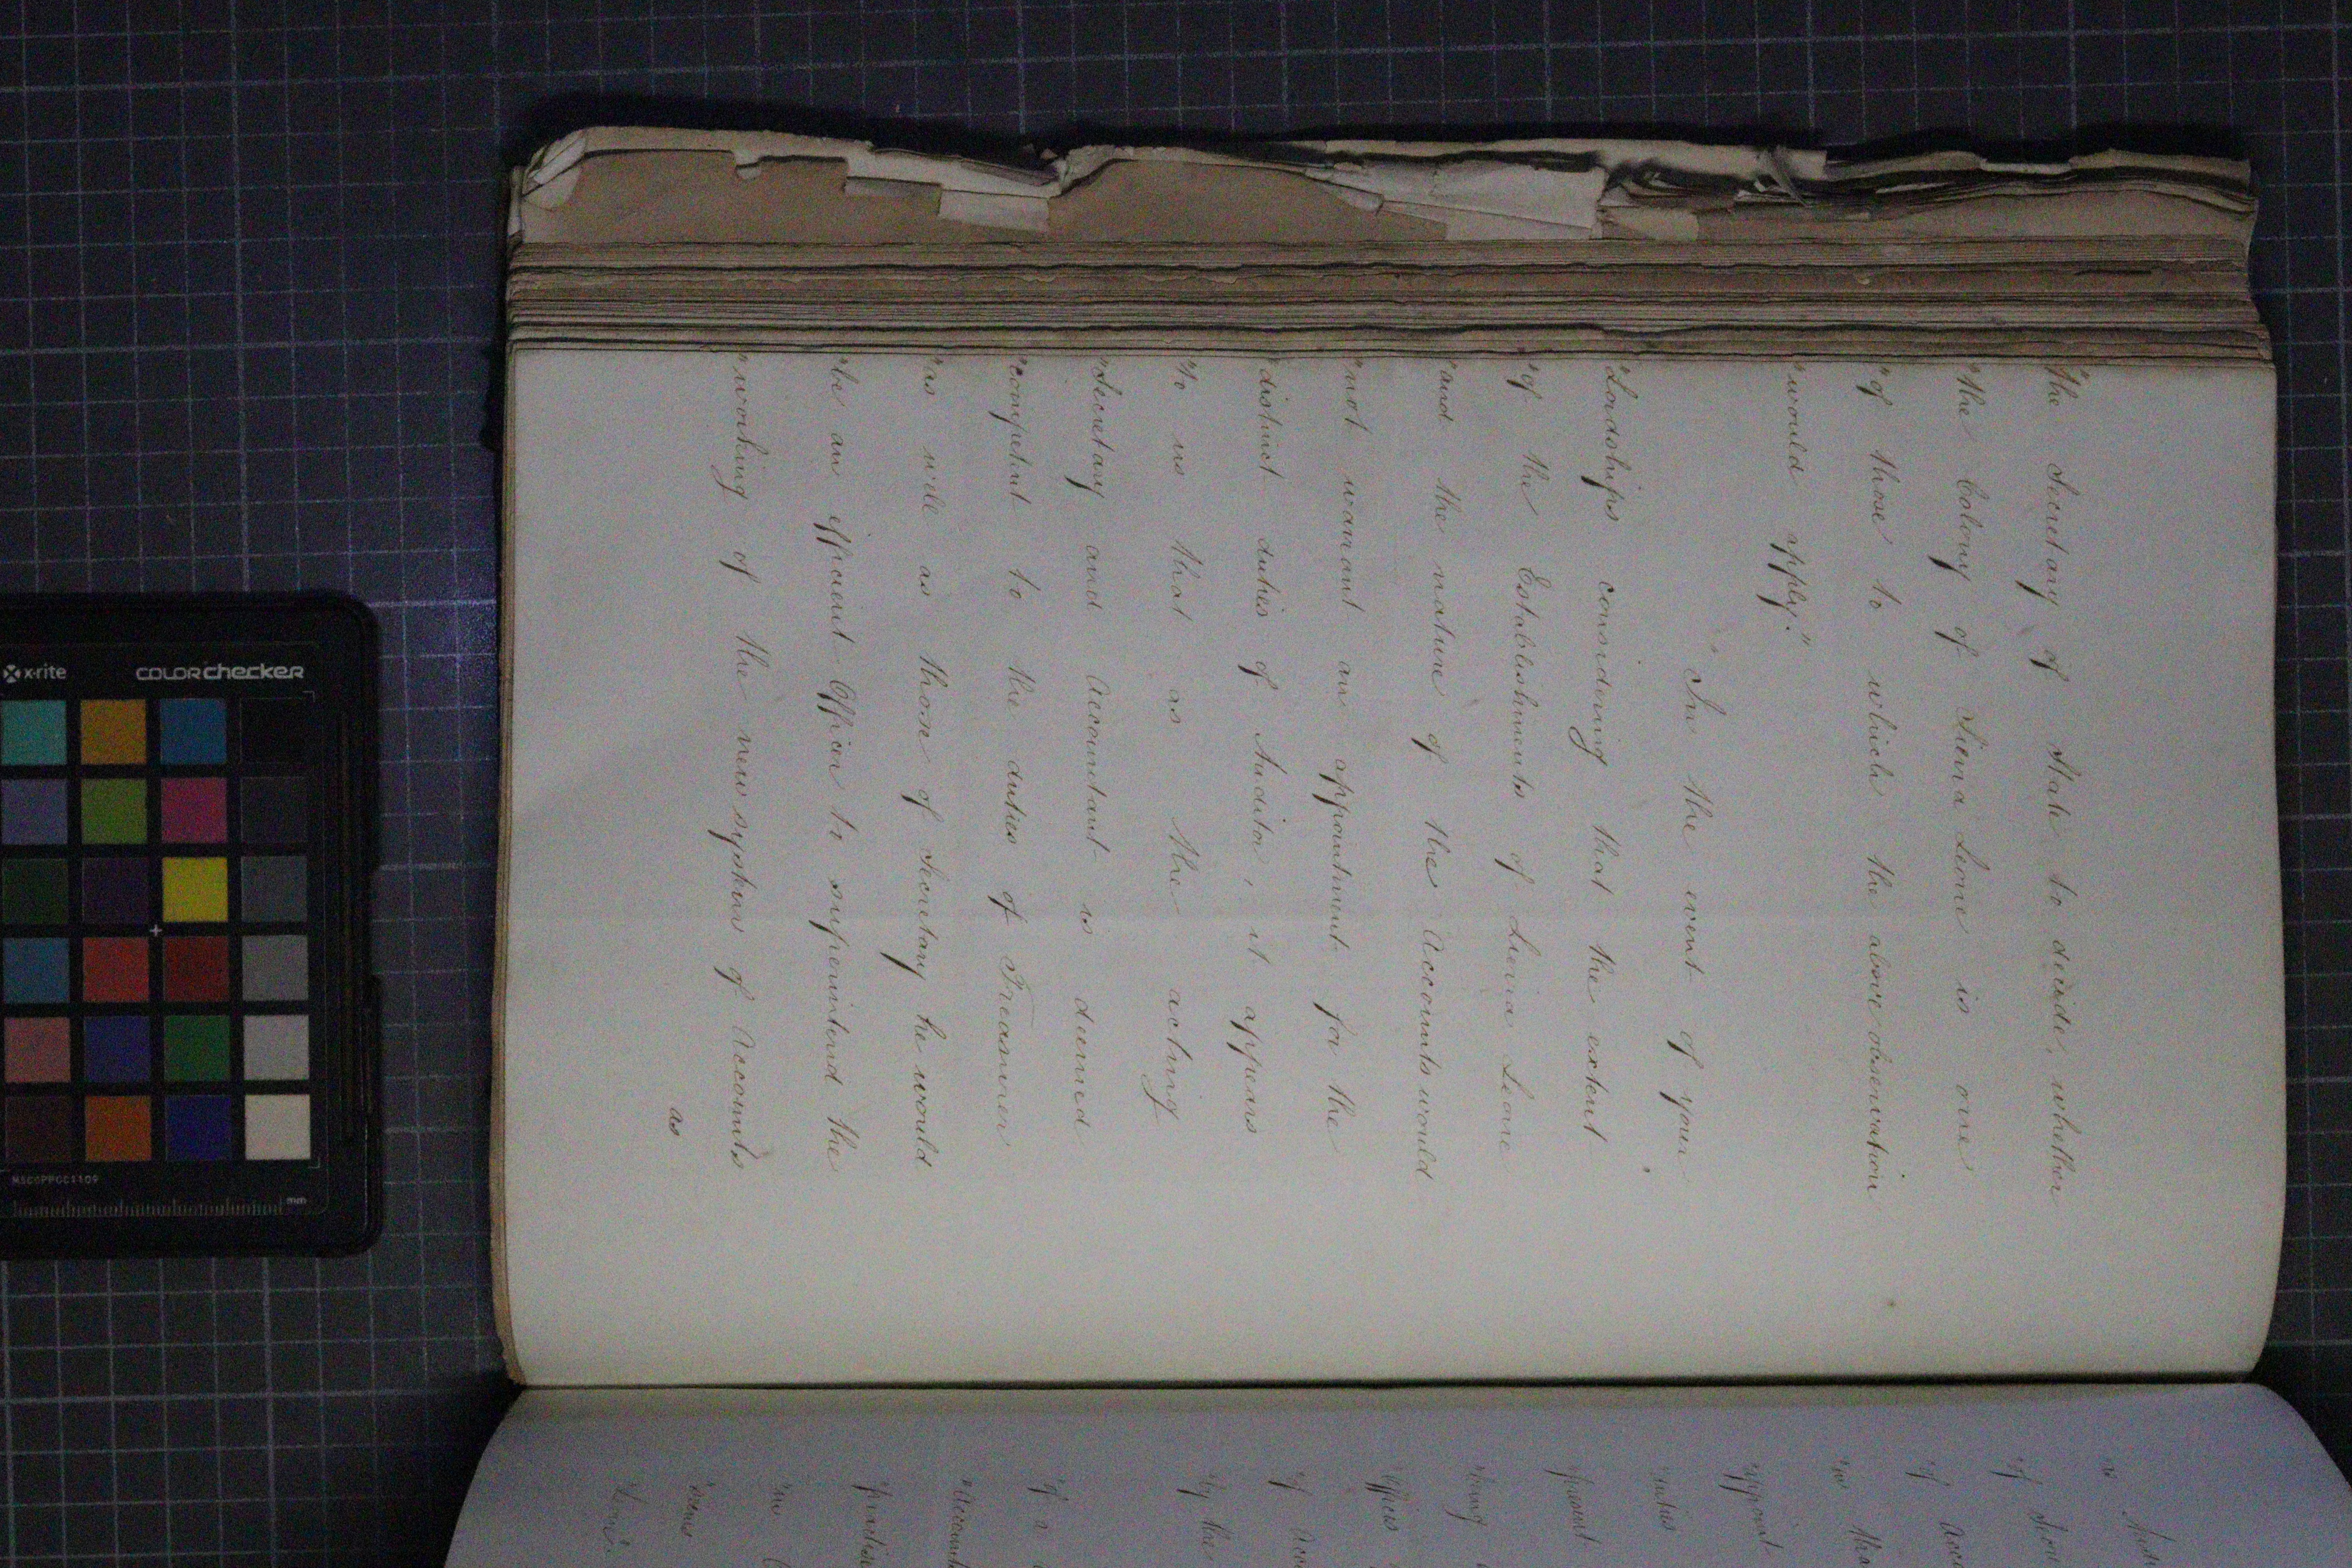 "the Secretary of State to decide, whether
"the Colony of Sierra Leone is one
"of those to which the above observation
"would apply."
"In the event of your
"Lordships considering that the extent
"of the Establishments of Sierra Leone
"and the nature of the Accounts would
"not warrant an appointment for the
"distinct duties of Auditor, it appears
"to us that as the acting
"Secretary and Accountant is deemed
"competent to the duties of Treasurer
"as well as those of Secretary he would
"be an efficient Officer to superintend the
"working of the new system of Accounts
as
"of
"of
"in
"appoint
"duties
"Offices
"of
"by the
"of a
"Account
"in
"Leone
x-rite
COLORchecker
MSCCPPCC1109
mm